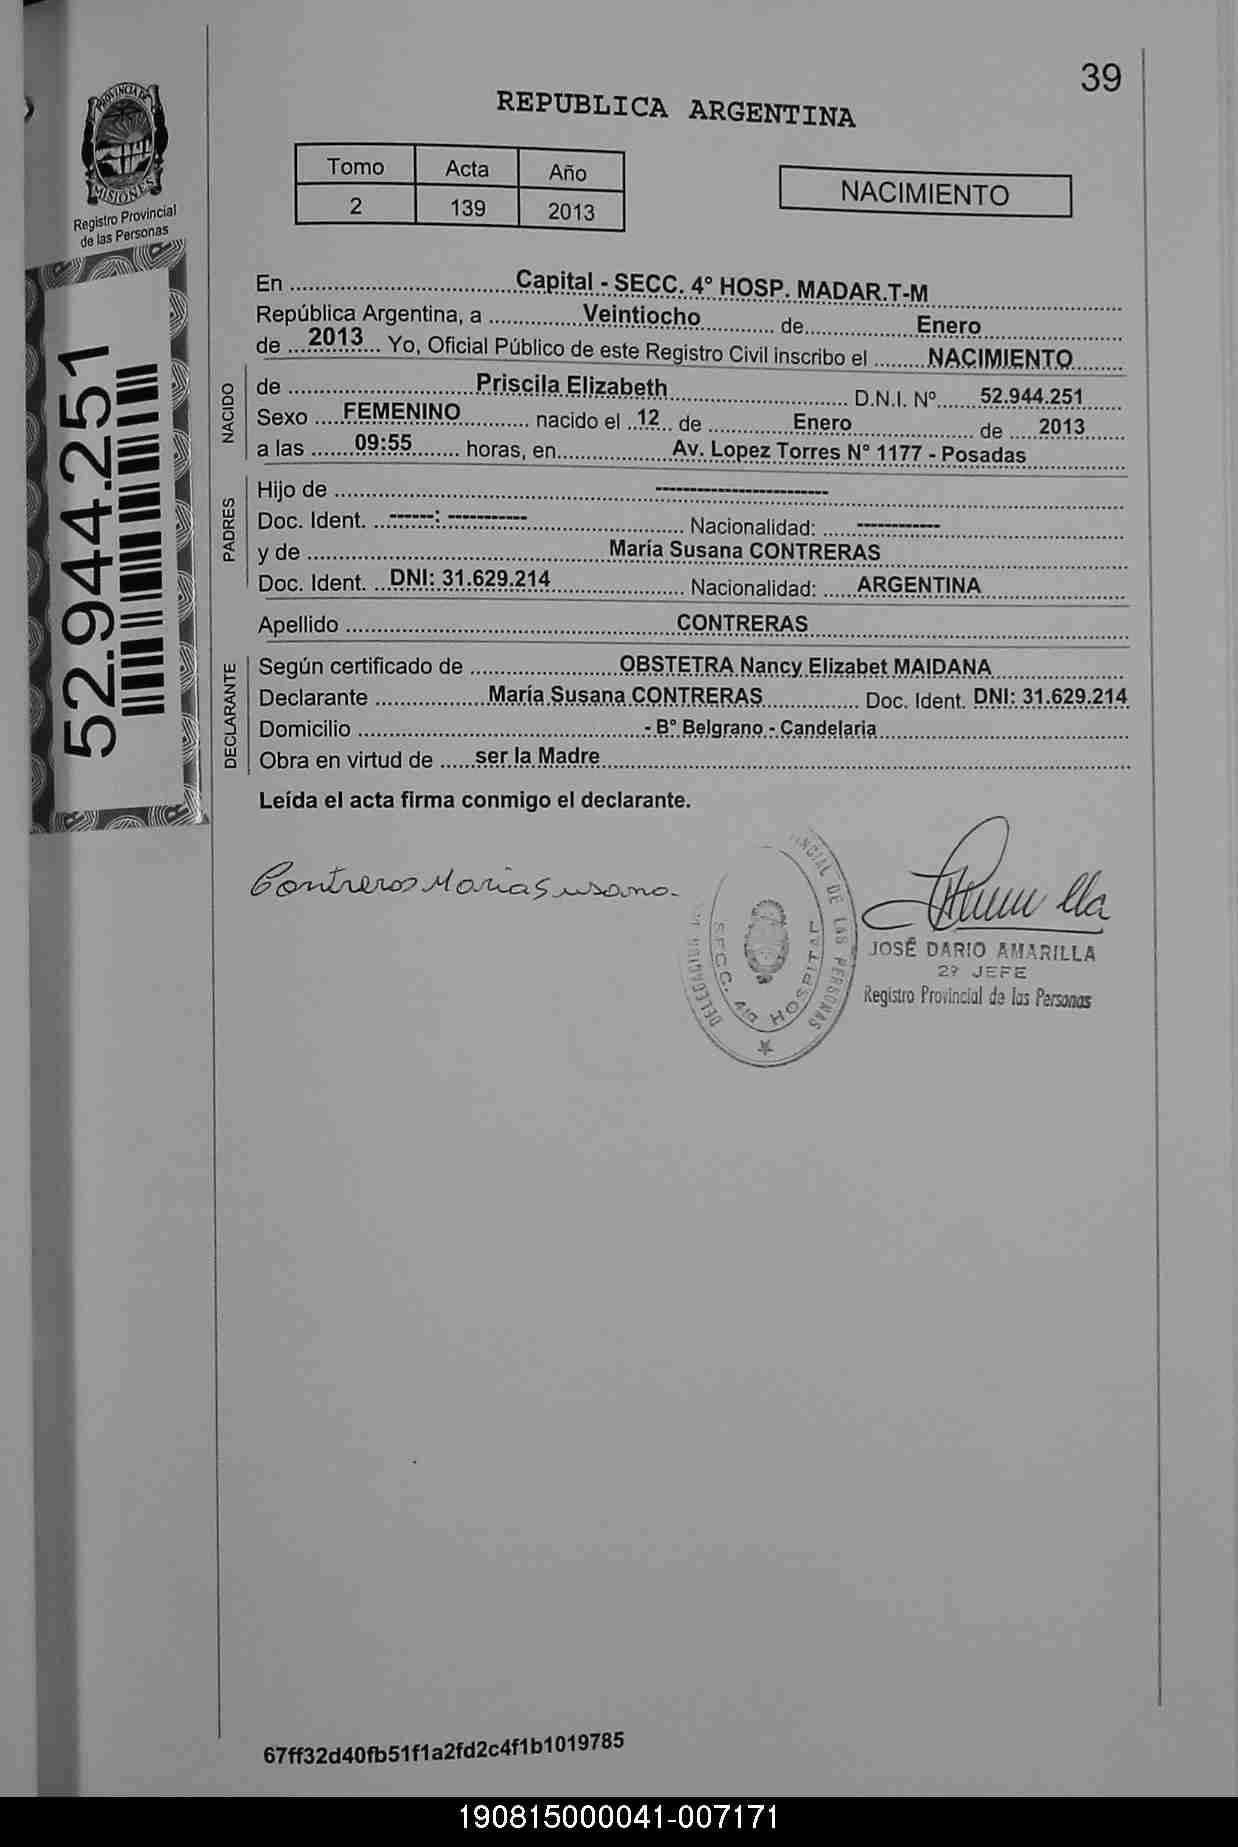 39
PROVINCIA DE
MISIONES
Registro Provincial
de las Personas
REPUBLICA ARGENTINA
Tomo Acta Año
2 139 2013
NACIMIENTO
52.944.251
En ................ Capital - SECC. 4° HOSP. MADAR.T-M ................
República Argentina, a ................ Veintiocho ................ de ................ Enero ................
de .... 2013 .... Yo, Oficial Público de este Registro Civil inscribo el ........ NACIMIENTO ........
NACIDO
de ................ Priscila Elizabeth ................ D.N.I. Nº ...... 52.944.251 ......
Sexo .... FEMENINO ................ nacido el .. 12 .. de ................ Enero ................ de .... 2013 ......
a las ...... 09:55 ........ horas, en ................ Av. Lopez Torres N° 1177 - Posadas ................
PADRES
Hijo de ................ ------------------------- ................
Doc. Ident. .. ------: ----------- ................ Nacionalidad: .... ------------ ................
y de ................ María Susana CONTRERAS ................
Doc. Ident. .. DNI: 31.629.214 ................ Nacionalidad: ..... ARGENTINA ................
Apellido ................ CONTRERAS ................
DECLARANTE
Según certificado de ................ OBSTETRA Nancy Elizabet MAIDANA ................
Declarante ................ María Susana CONTRERAS ................ Doc. Ident. DNI: 31.629.214
Domicilio ................ - B° Belgrano - Candelaria ................
Obra en virtud de ...... ser la Madre ................
Leída el acta firma conmigo el declarante.
Contreras Maria Susana.
DE LAS PERSONAS
DELEGACION
SECC. 4ta HOSPITAL
JOSÉ DARIO AMARILLA
2º JEFE
Registro Provincial de las Personas
67ff32d40fb51f1a2fd2c4f1b1019785
190815000041-007171